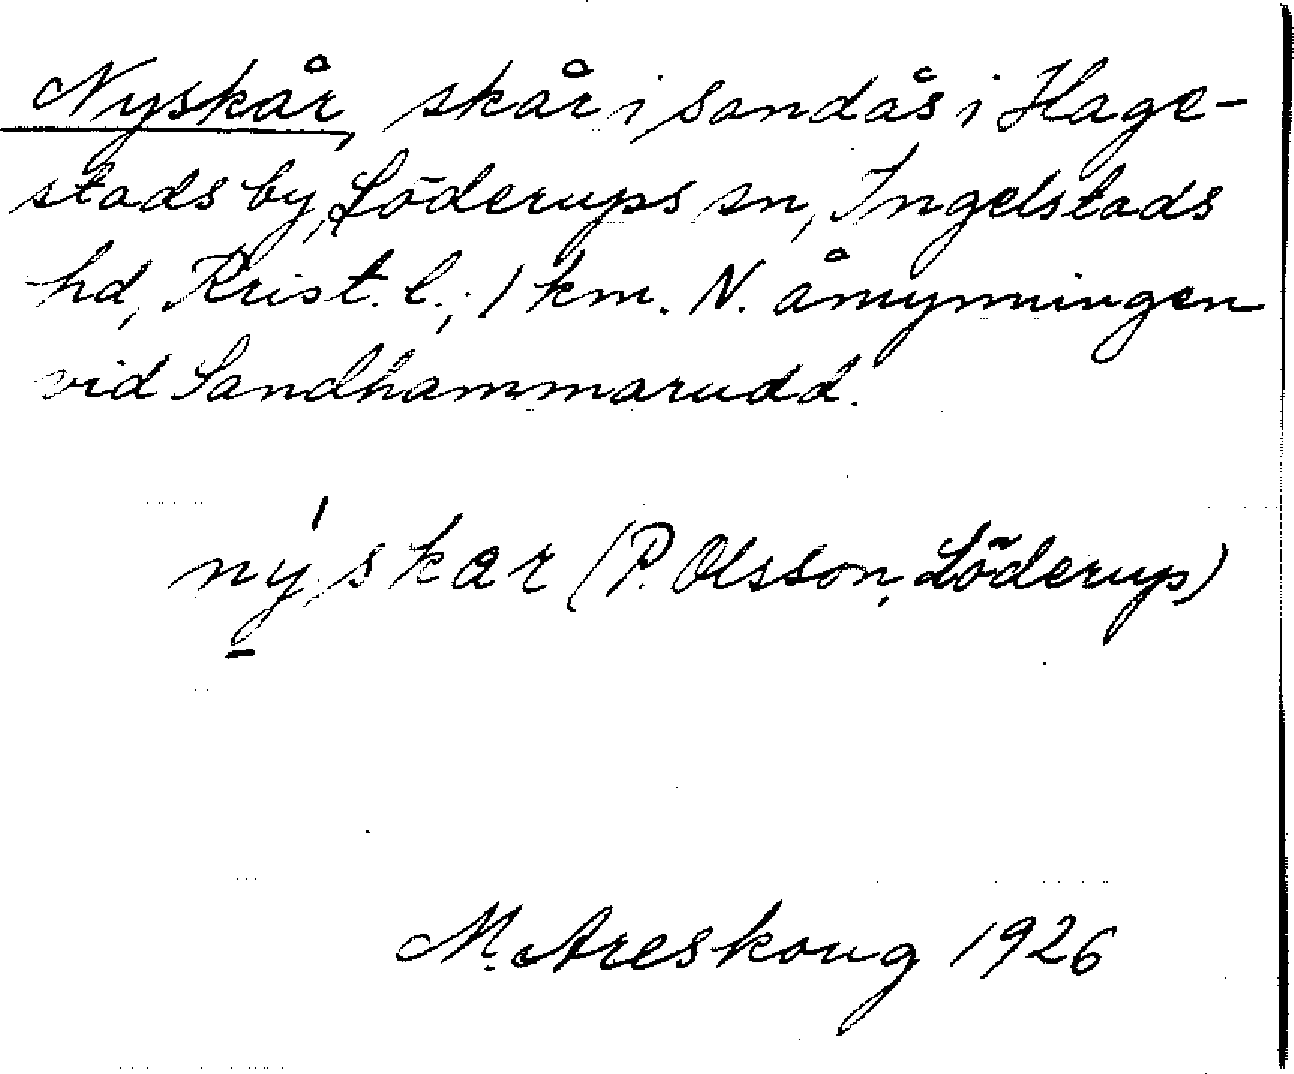 Nyskår, skår i sandås i Hage-
stads by, Löderups sn, Ingelstads
hd, Krist. l., 1 km. N. åmynningen
vid Sandhammarudd.
nýskar (P. Olsson, Löderup)
M. Areskoug 1926